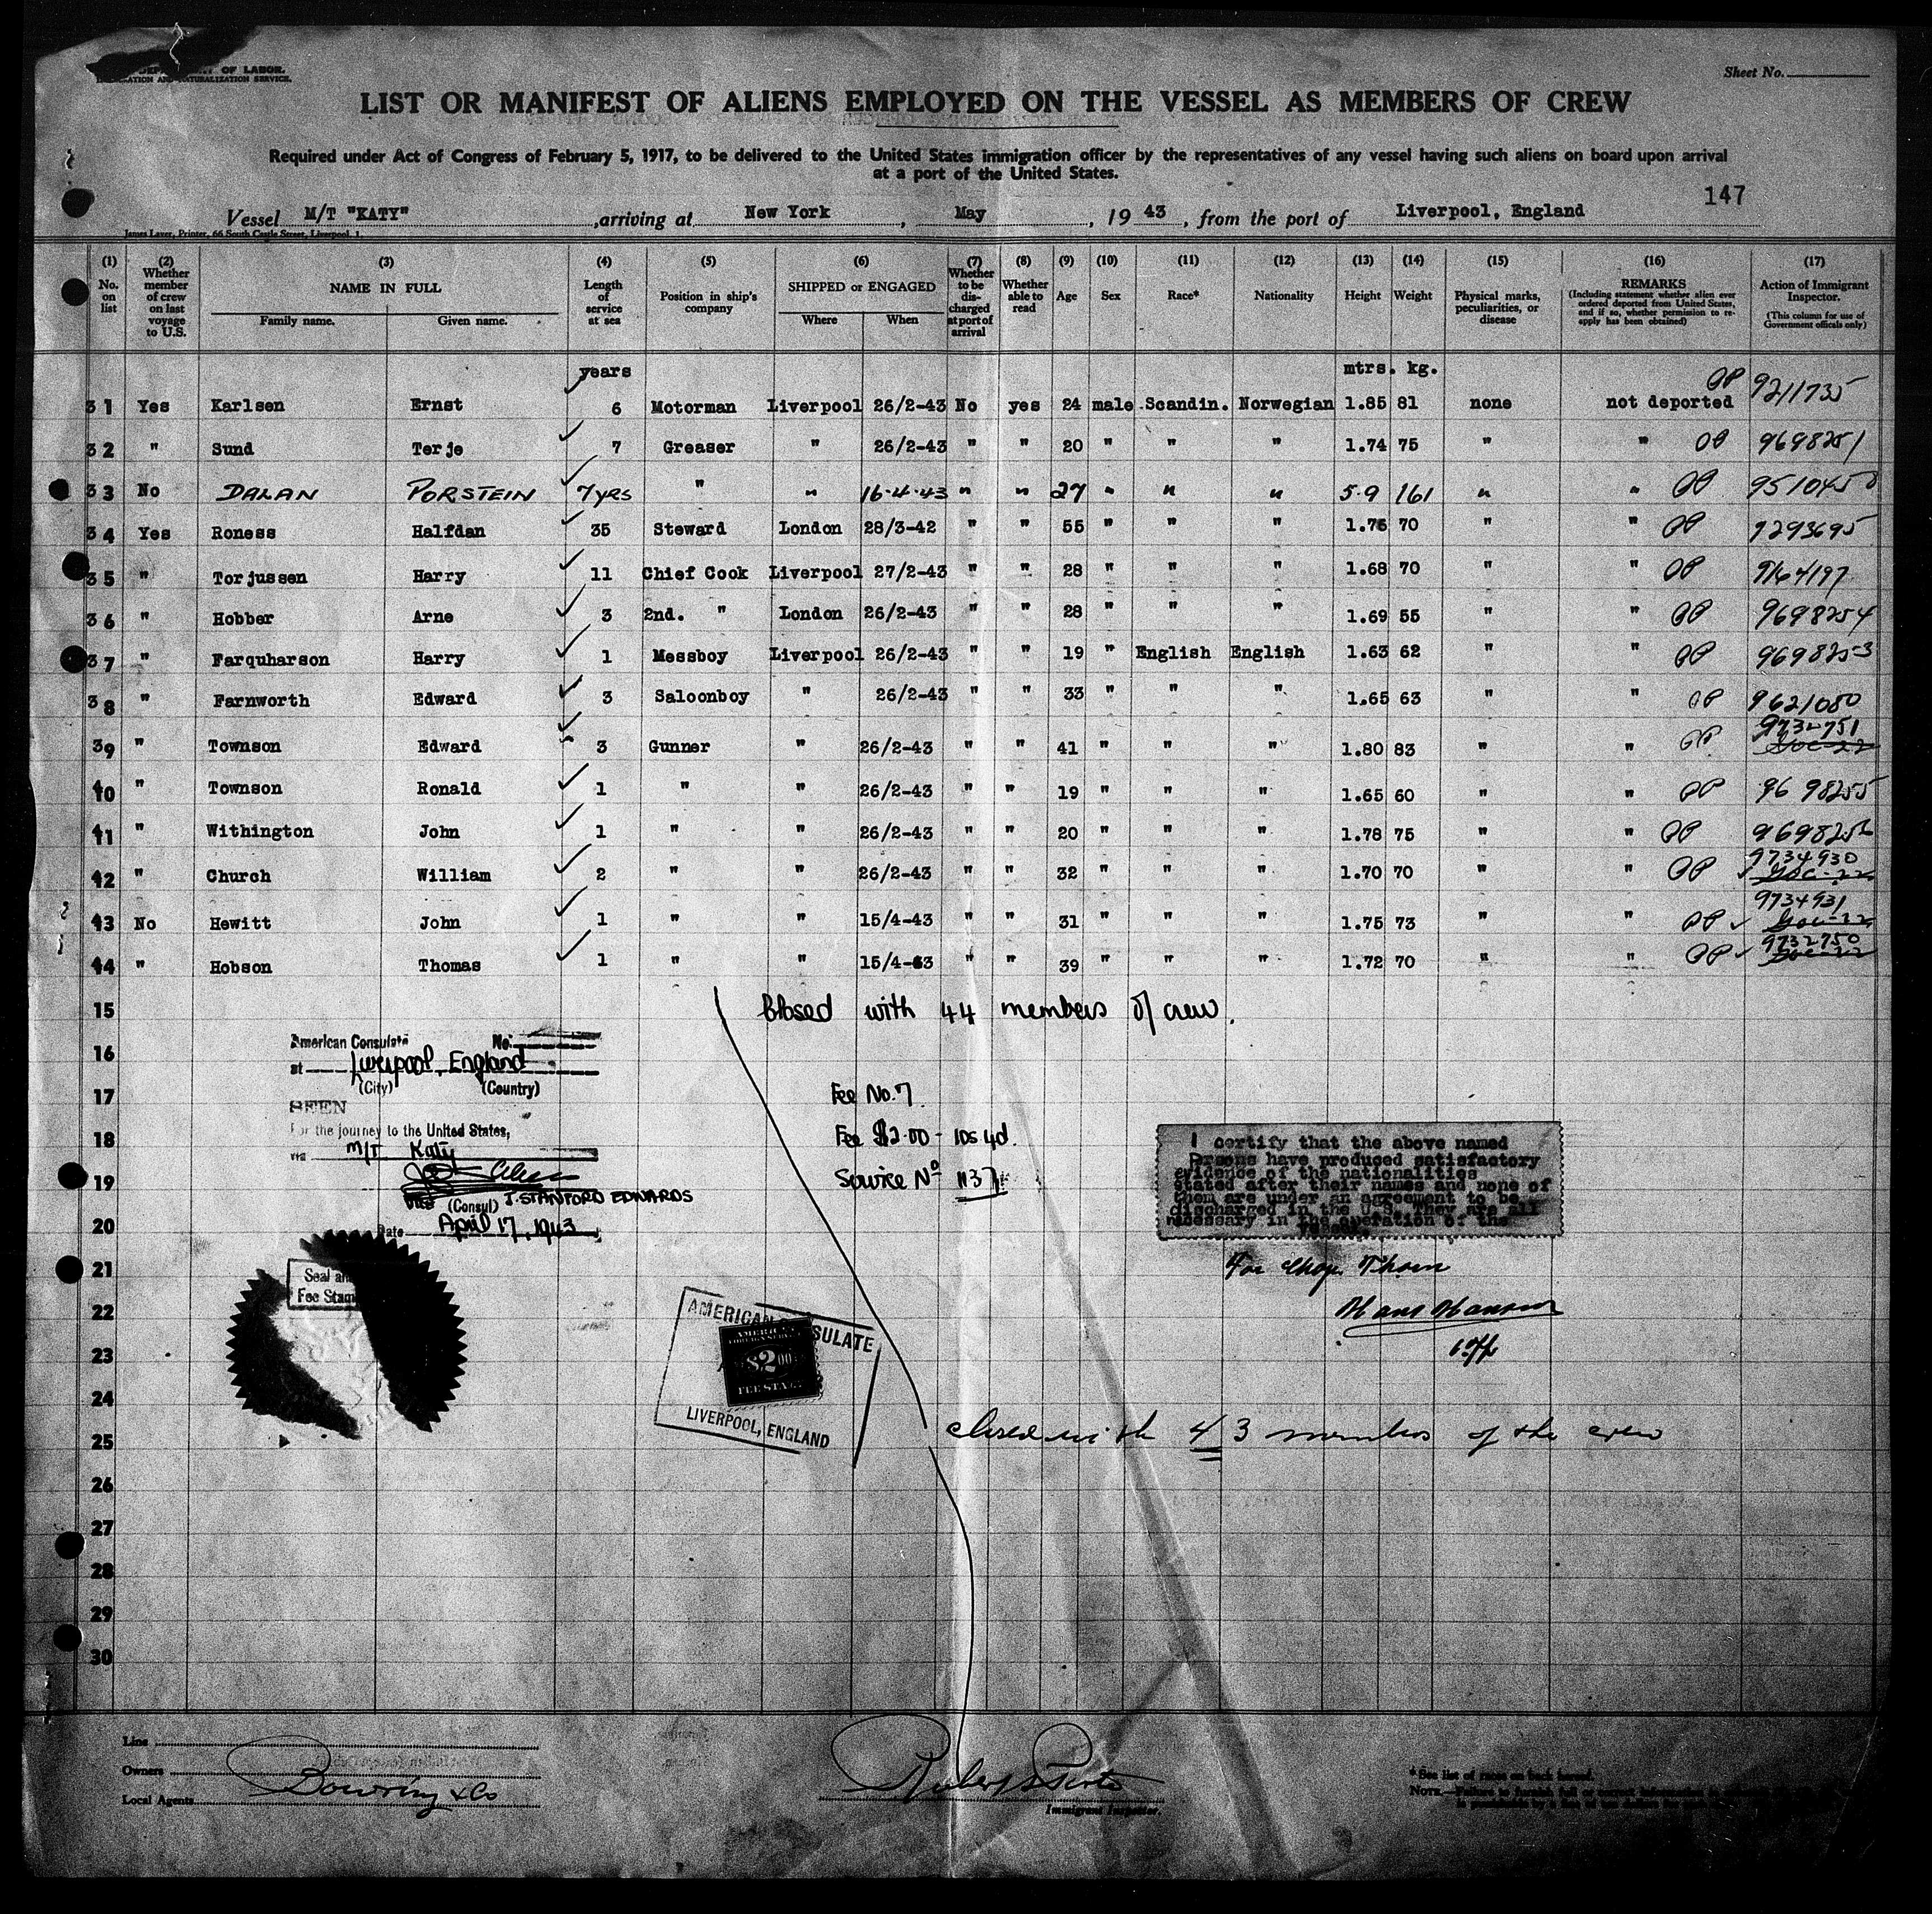 DEPARTMENT OF LABOR.
IMMIGRATION AND NATURALIZATION SERVICE.
Sheet No.
LIST OR MANIFEST OF ALIENS EMPLOYED ON THE VESSEL AS MEMBERS OF CREW
Required under Act of Congress of February 5, 1917, to be delivered to the United States immigration officer by the representatives of any vessel having such aliens on board upon arrival
at a port of the United States.
147
Vessel M/T "KATY" , arriving at New York , May , 19 43 , from the port of Liverpool, England
James Laver, Printer, 66 South Castle Street, Liverpool, 1.
(1) No. on list
(2) Whether member of crew on last voyage to U.S.
(3) NAME IN FULL Family name. Given name.
(4) Length of service at sea
(5) Position in ship's company
(6) SHIPPED or ENGAGED Where When
(7) Whether to be discharged at port of arrival
(8) Whether able to read
(9) Age
(10) Sex
(11) Race*
(12) Nationality
(13) Height
(14) Weight
(15) Physical marks, peculiarities, or disease
(16) REMARKS (Including statement whether alien ever ordered deported from United States, and if so, whether permission to reapply has been obtained)
(17) Action of Immigrant Inspector. (This column for use of Government officials only)
years mtrs. kg.
31 Yes Karlsen Ernst 6 Motorman Liverpool 26/2-43 No yes 24 male Scandin. Norwegian 1.85 81 none not deported 9211735
32 " Sund Terje 7 Greaser " 26/2-43 " " 20 " " " 1.74 75 " " 9698251
33 No DALAN PORSTEIN 7 yrs " " 16.4.43 " " 27 " " " 5.9 161 " " 9510458
34 Yes Roness Halfdan 35 Steward London 28/3-42 " " 55 " " " 1.75 70 " " 7293695
35 " Torjussen Harry 11 Chief Cook Liverpool 27/2-43 " " 28 " " " 1.68 70 " " 9164197
36 " Hobber Arne 3 2nd. " London 26/2-43 " " 28 " " " 1.69 55 " " 9698254
37 " Farquharson Harry 1 Messboy Liverpool 26/2-43 " " 19 " English English 1.63 62 " " 9698253
38 " Farnworth Edward 3 Saloonboy " 26/2-43 " " 33 " " " 1.65 63 " " 9621080
39 " Townson Edward 3 Gunner " 26/2-43 " " 41 " " " 1.80 83 " " 9732751
40 " Townson Ronald 1 " " 26/2-43 " " 19 " " " 1.65 60 " " 9698255
41 " Withington John 1 " " 26/2-43 " " 20 " " " 1.78 75 " " 9698256
42 " Church William 2 " " 26/2-43 " " 32 " " " 1.70 70 " " 9734930
43 No Hewitt John 1 " " 15/4-43 " " 31 " " " 1.75 73 " " 9734931
44 " Hobson Thomas 1 " " 15/4-43 " " 39 " " " 1.72 70 " " 9732750
15
Closed with 44 members of crew.
16
17
18
19
20
21
22
23
24
25
26
27
28
29
30
American Consulate No.
at Liverpool, England
(City) (Country)
SEEN
For the journey to the United States,
via M/T Katy
Vice (Consul) J. STANFORD EDWARDS
Date April 17, 1943
Fee No. 7
Fee $2.00 - 10s 4d.
Service No 1137
I certify that the above named
Persons have produced satisfactory
evidence of the nationalities
stated after their names and none of
them are under an agreement to be
discharged in the U.S. They are all
necessary in the operation of the
Hans Hansen
Seal and
Fee Stamp
AMERICAN CONSULATE
AMERICAN
FOREIGN SERVICE
$2.00
FEE STAMP
LIVERPOOL, ENGLAND
closed with 43 members of the crew
Line
Owners
Local Agents Bowring & Co
Immigrant Inspector.
*See list of races on back hereof.
NOTE.